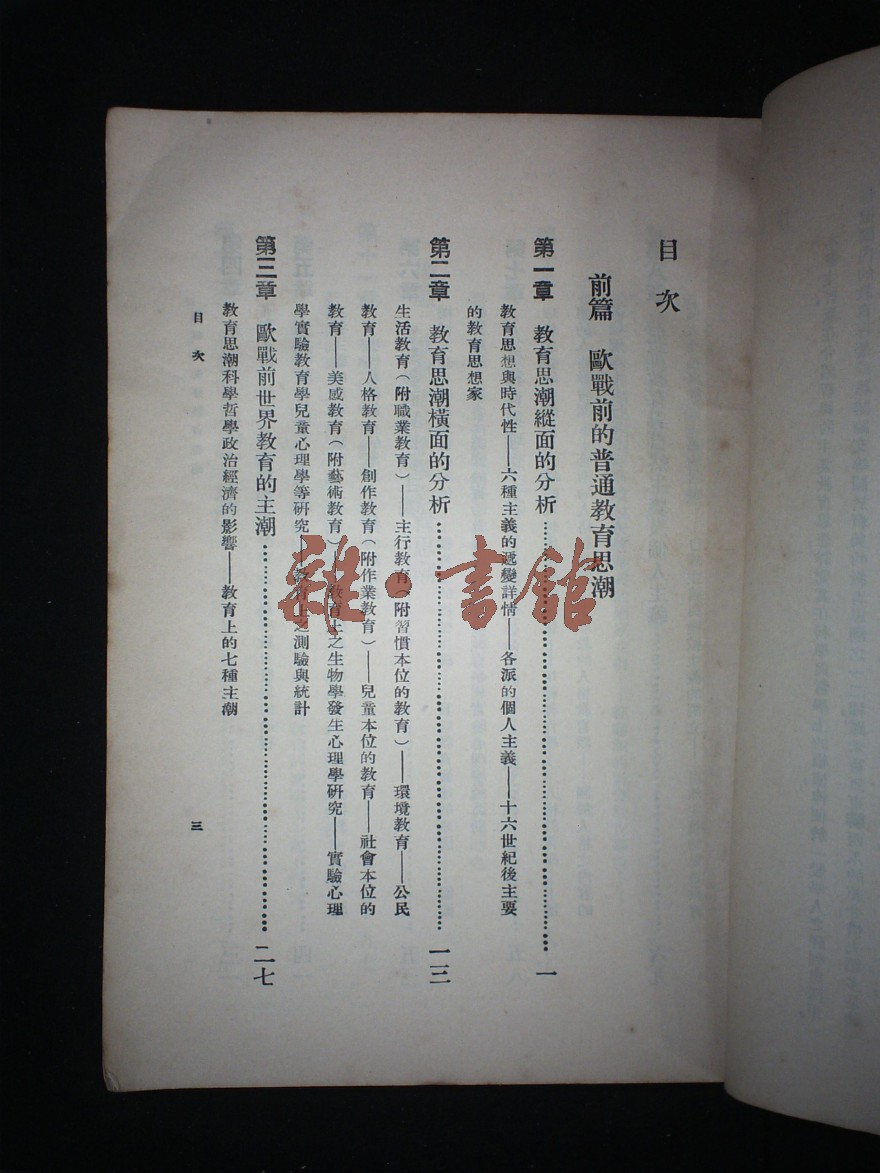 目次
前篇　歐戰前的普通教育思潮
第一章　教育思潮縱面的分析…………一
教育思想與時代性——六種主義的遞變詳情——各派的個人主義——十六世紀後主要
的教育思想家
第二章　教育思潮橫面的分析…………一三
生活教育（附職業教育）——主行教育（附習慣本位的教育）——環境教育——公民
教育——人格教育——創作教育（附作業教育）——兒童本位的教育——社會本位的
教育——美感教育（附藝術教育）——教育上之生物學發生心理學研究——實驗心理
學實驗教育學兒童心理學等研究——教育上之測驗與統計
第三章　歐戰前世界教育的主潮…………二七
教育思潮科學哲學政治經濟的影響——教育上的七種主潮
目次
三
雜·書館